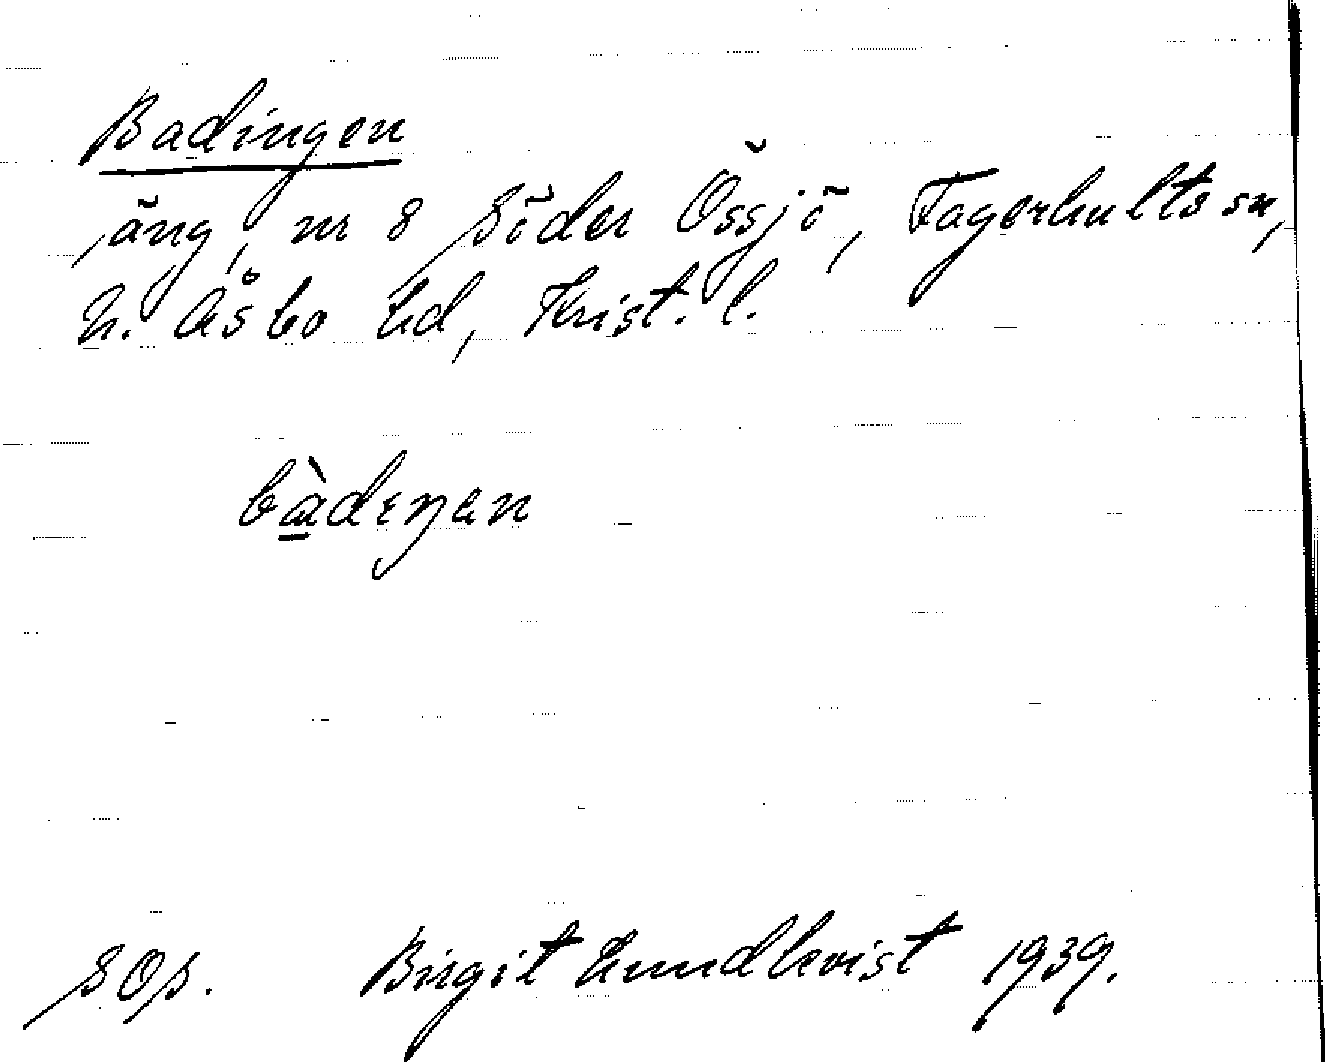 Badingen
äng, nr 8 Söder Össjö, Fagerhults sn,
N. Åsbo hd, Krist. l.
bàdıŋen
SOp. Birgit Lundkvist 1939.